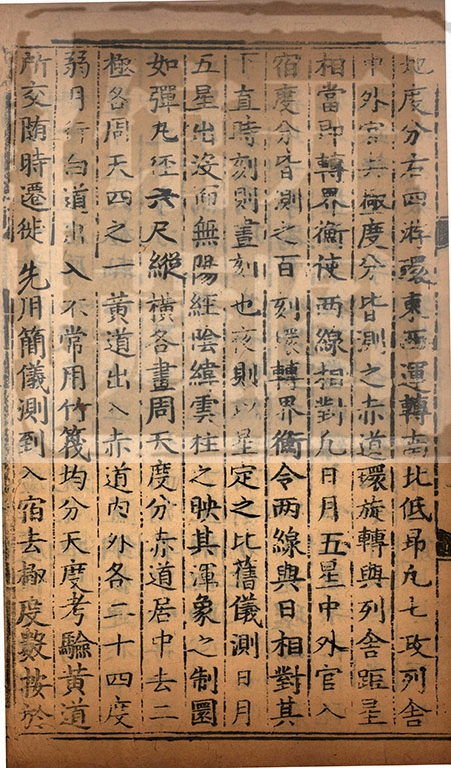 地度分右四游環東西運轉南北低昻九七政列舍
中外官去極度分皆測之赤道環旋轉與列舍距星
相當即轉界衡使兩線相對凡日月五星中外官入
宿度分皆測之百刻環轉界衡令兩線與日相對其
下直時刻則晝刻也夜則以星定之比舊儀測日月
五星出沒而無陽經陰緯雲柱之映其渾象之制圜
如彈丸徑六尺縱橫各畫周天度分赤道居中去二
極各周天四之一黃道出入赤道內外各二十四度
弱月行白道出入不常用竹篾均分天度考驗黃道
所交随時遷徙先用簡儀測到入宿去極度數按於